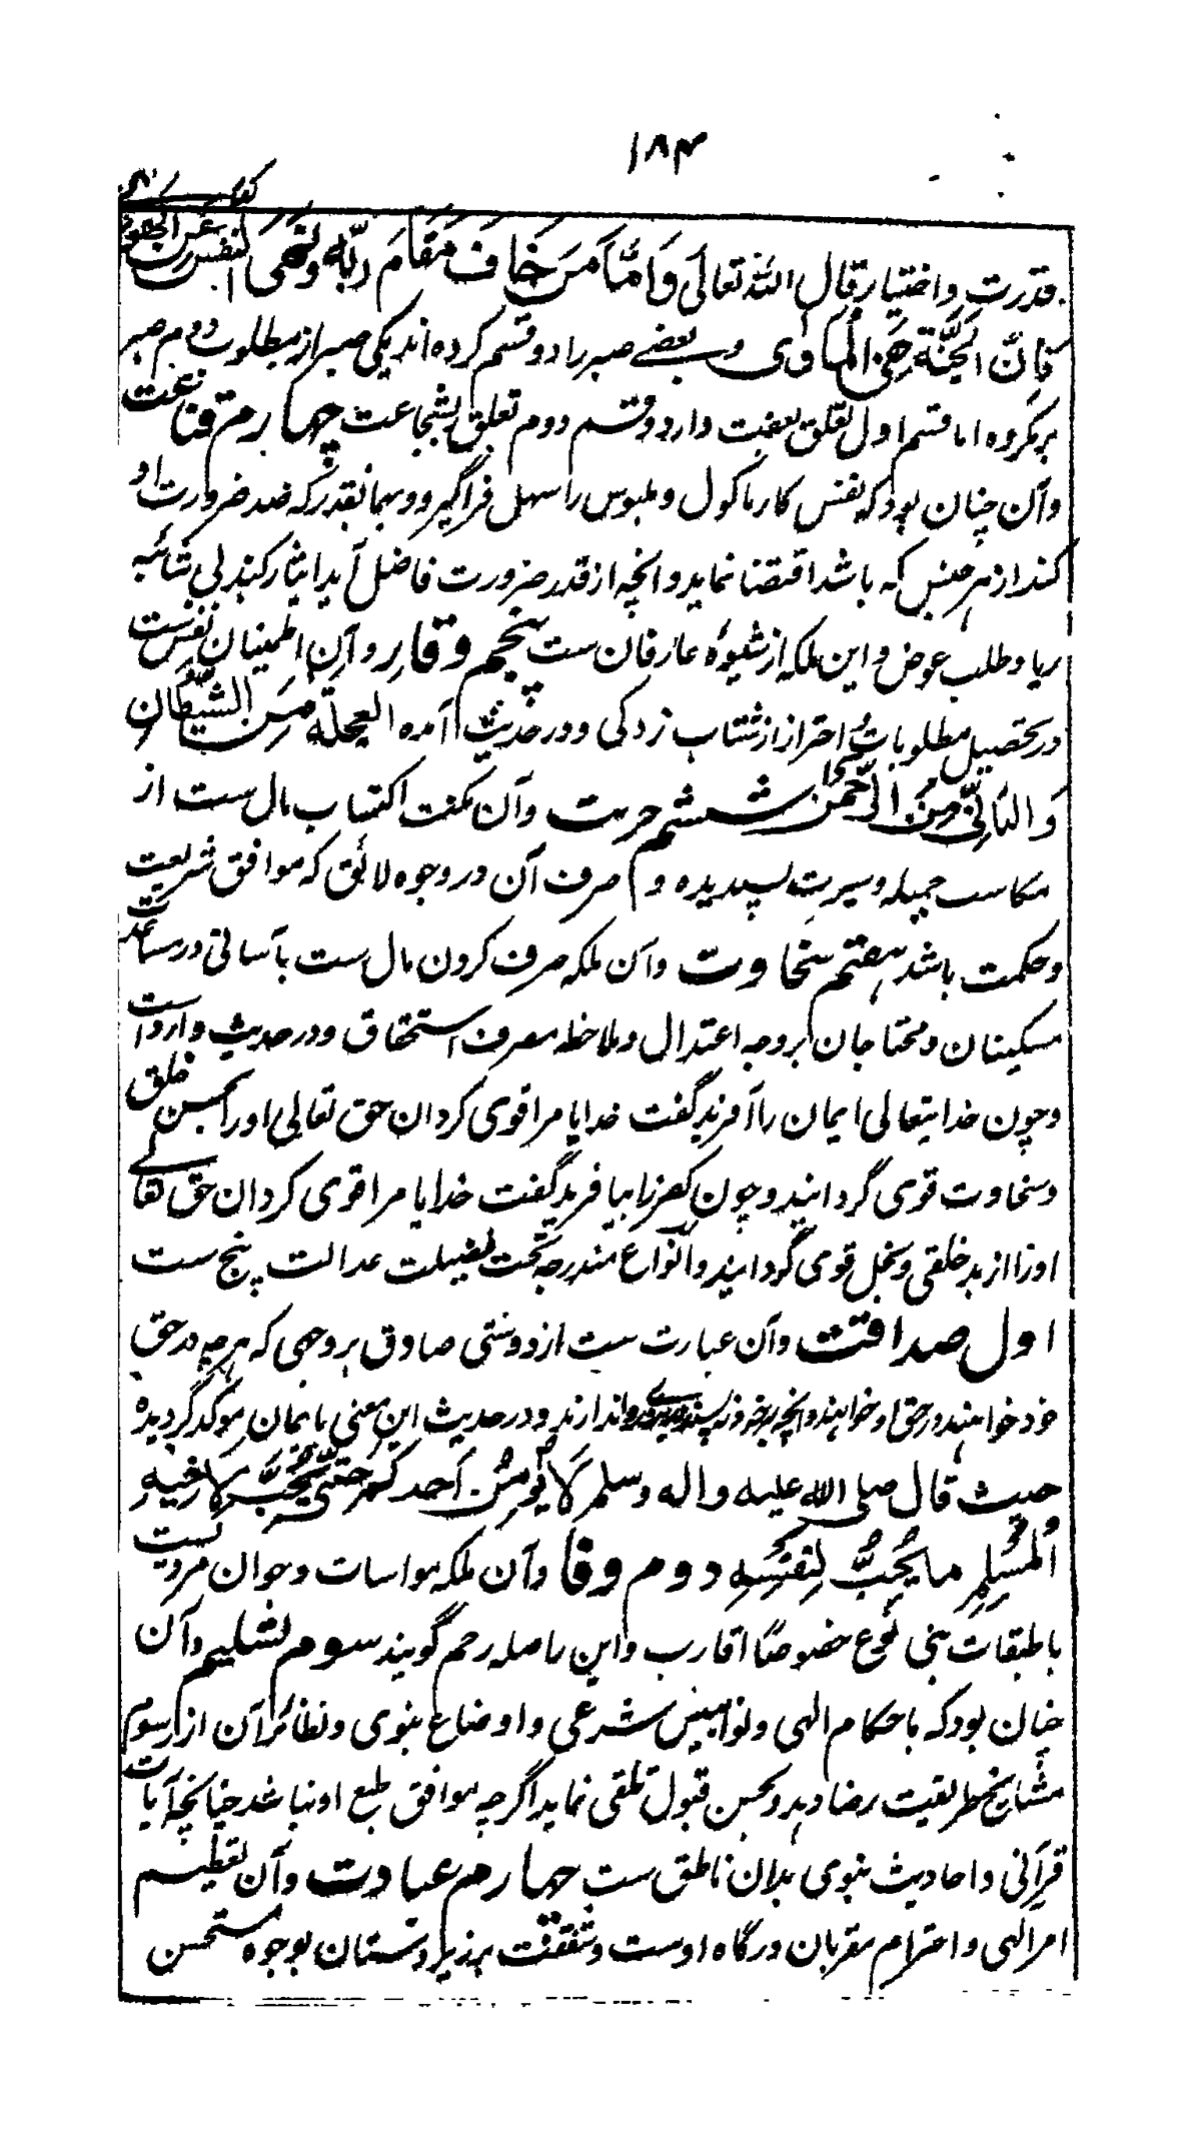 ۱۸۴
قدرت و اختیار قال الله تعالی وَاَمَّا مَنۡ خَافَ مَقَامَ رَبِّهٖ وَنَهَی النَّفۡسَ عَنِ الۡهَوٰی
فَاِنَّ الۡجَنَّةَ هِیَ الۡمَاوٰی و بعضے صبر را دو قسم کرده اند یکی صبر از مطلوب دوم صبر
بر مکروه اما قسم اول تعلق بعفت دارد و قسم دوم تعلق بشجاعت چهارم قناعت
و آن چنان بود که نفس کار ماکول و ملبوس را سهل فراگیرد و بهمانقدر که ضد ضرورت او
کند از هر جنس که باشد اقتضا نماید و انچه از قدر ضرورت فاضل آید ایثار کند بی شائبه
ریا و طلب عوض و این ملکه از شیوهٔ عارفان ست پنجم وقار و آن اطمینان نفس ست
در تحصیل مطلوبات و احتراز از شتاب زدگی و در حدیث آمده العجلة مِنَ الشَّیۡطَانِ
وَ التَّانِّی مِنَ الرَّحۡمٰن ششم حریت و آن مکنت اکتساب مال ست از
مکاسب جمیله و سیرت پسندیده و صرف آن در وجوه لائق که موافق شریعت
و حکمت باشد هفتم سخاوت و آن ملکه صرف کردن مال ست بآسانی در مساعدت
مسکینان و محتاجان بر وجه اعتدال و ملاحظه مصرف استحقاق و در حدیث وارد است
و چون خدایتعالی ایمان را آفرید گفت خدایا مرا قوی گردان حق تعالی او را بحسن خلق
و سخاوت قوی گردانید و چون کفر را بیافرید گفت خدایا مرا قوی گردان حق تعالے
او را از بد خلقی و بخل قوی گردانید و انواع مندرجه تحت فضیلت عدالت پنج ست
اول صداقت و آن عبارت ست از دوستی صادق بر وجهی که هر چه در حق
خود خواهند در حق او خواهند و انچه بر خود نه پسندند بروے روا ندارند و در حدیث این معنی بایمان موکد گردیده
حیث قال صلی الله علیه و اله و سلم لَا یُؤۡمِنُ اَحَدکُم حَتّٰی یُحِبَّ لِاَخِیۡهِ
الۡمُسۡلِمِ مَا یُحِبُّ لِنَفۡسِهٖ دوم وفا و آن ملکه مواسات و جوان مردیست
با طبقات بنی نوع خصوصًا اقارب و این را صله رحم گویند سوم تسلیم و آن
چنان بود که باحکام الهی و نوامیس شرعی و اوضاع نبوی و نظائر آن از رسوم
مشایخ طریقت رضا دهد و بحسن قبول تلقی نماید اگرچه موافق طبع او نباشد چنانچه آیات
قرآنی و احادیث نبوی بدان ناطق ست چهارم عبادت و آن تعظیم
امر الهی و احترام مقربان درگاه اوست و شفقت بر زیر دستان بوجوه مستحسن